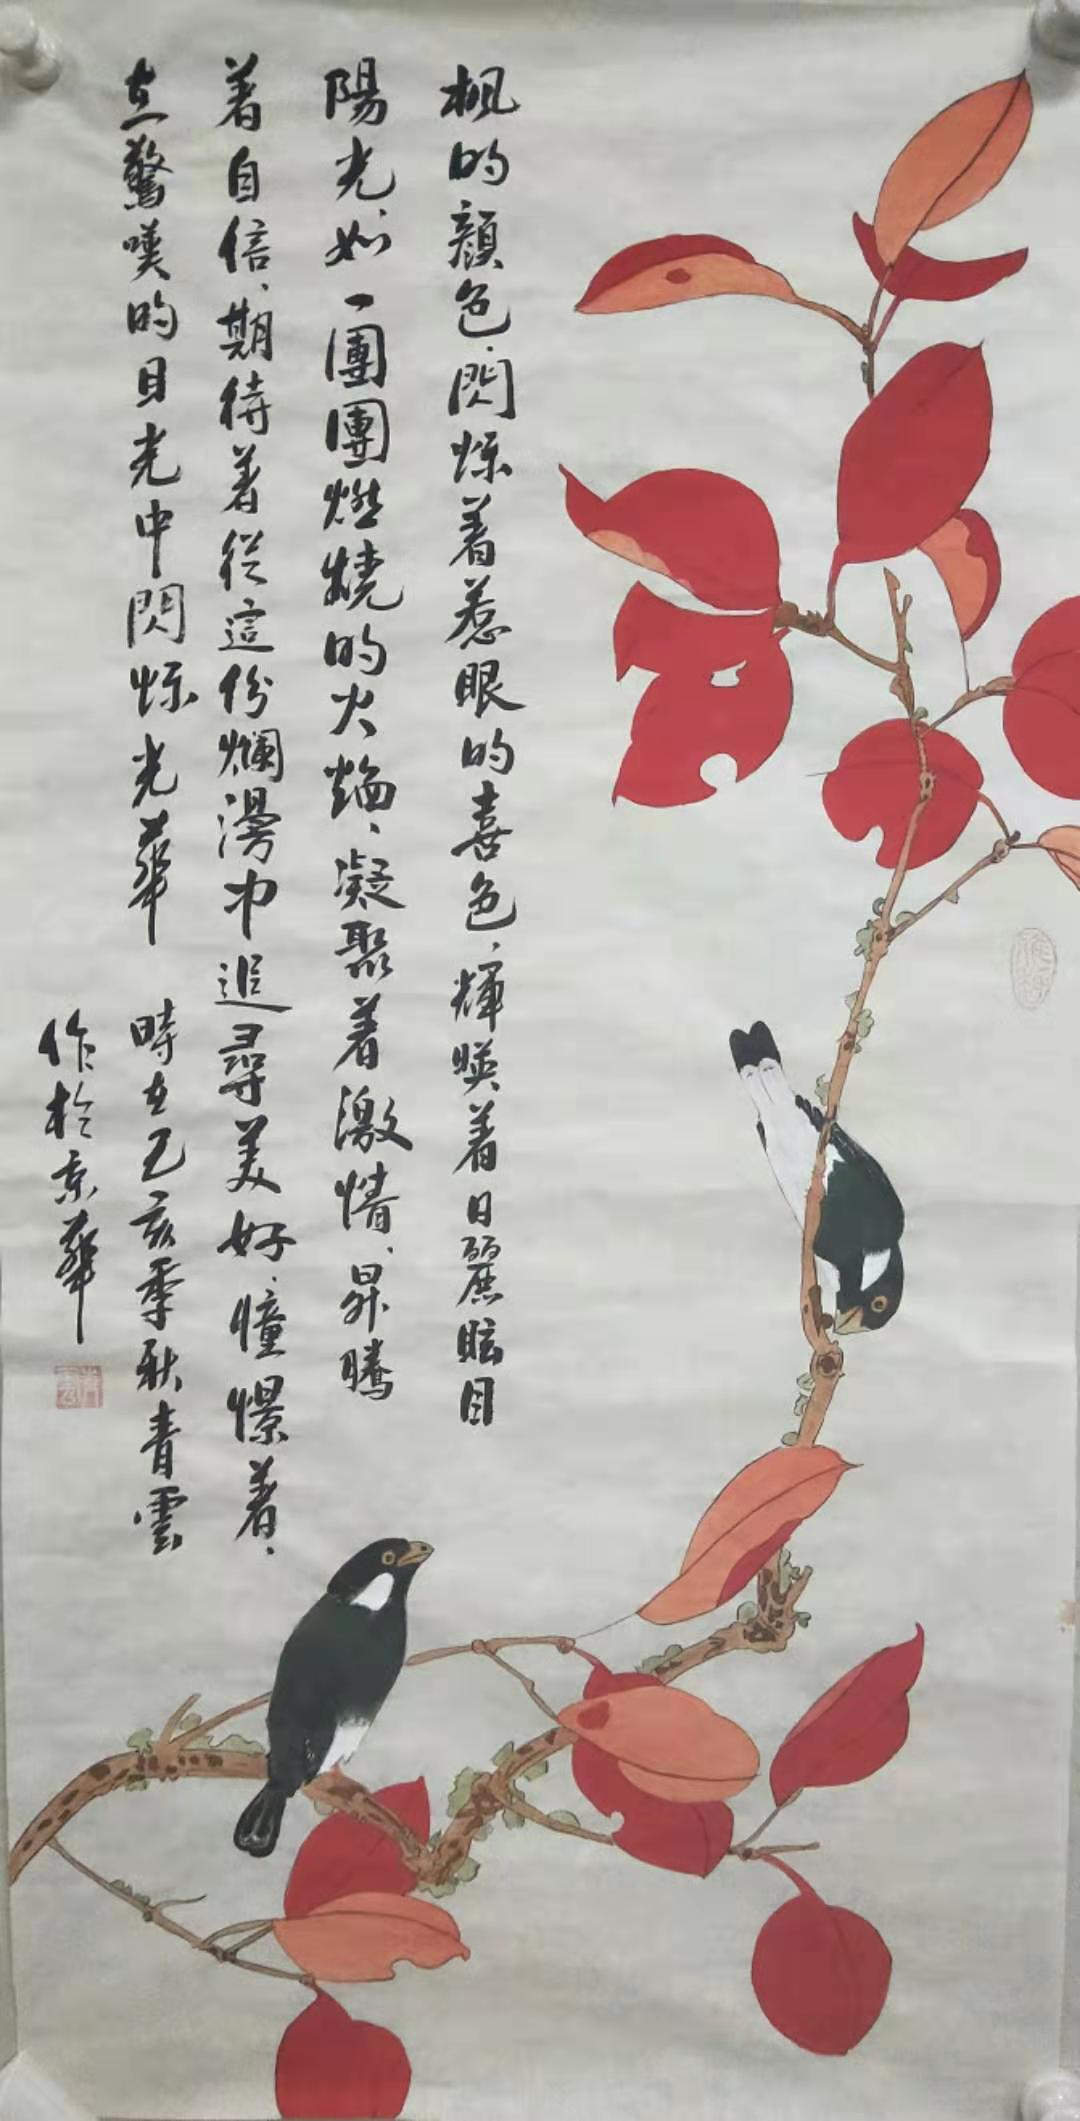 枫的顔色、閃烁着惹眼的喜色、輝暎着日麗眩目
陽光如、一團團燃燒的火焰、凝聚着激情、昇騰
着自信、期待着從這份爛漫中追尋美好、憧憬着、
在驚嘆的目光中閃烁光華 時在己亥季秋青雲
作於京華